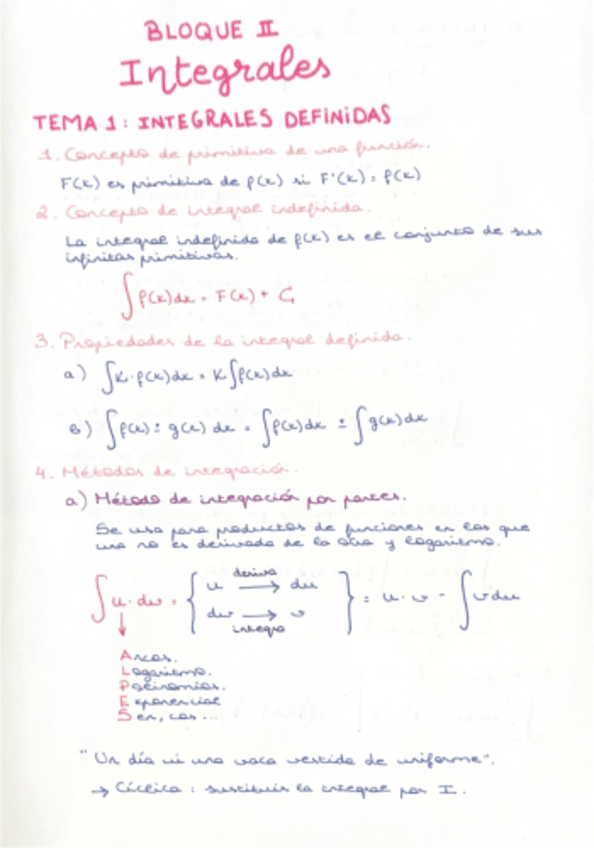 BLOQUE II
Integrales
TEMA 1: INTEGRALES DEFINIDAS
1. Concepto de primitiva de una función.
F(x) es primitiva de f(x) si F'(x) = f(x)
2. Concepto de integral indefinida.
La integral indefinida de f(x) es el conjunto de sus
infinitas primitivas.
∫f(x)dx = F(x) + C
3. Propiedades de la integral definida.
a) ∫K·f(x)dx = K∫f(x)dx
b) ∫f(x) ± g(x) dx = ∫f(x)dx ± ∫g(x)dx
4. Métodos de integración.
a) Método de integración por partes.
Se usa para productos de funciones en los que
una no es derivada de la otra y logaritmo.
∫u·dv = { u deriva → du
dv → v integra } = u·v - ∫v du
↓
Arcos.
Logaritmo.
Polinomios.
Exponencial
Sen, cos ...
"Un día vi una vaca vestida de uniforme".
→ Cíclica: sustituir la integral por I.